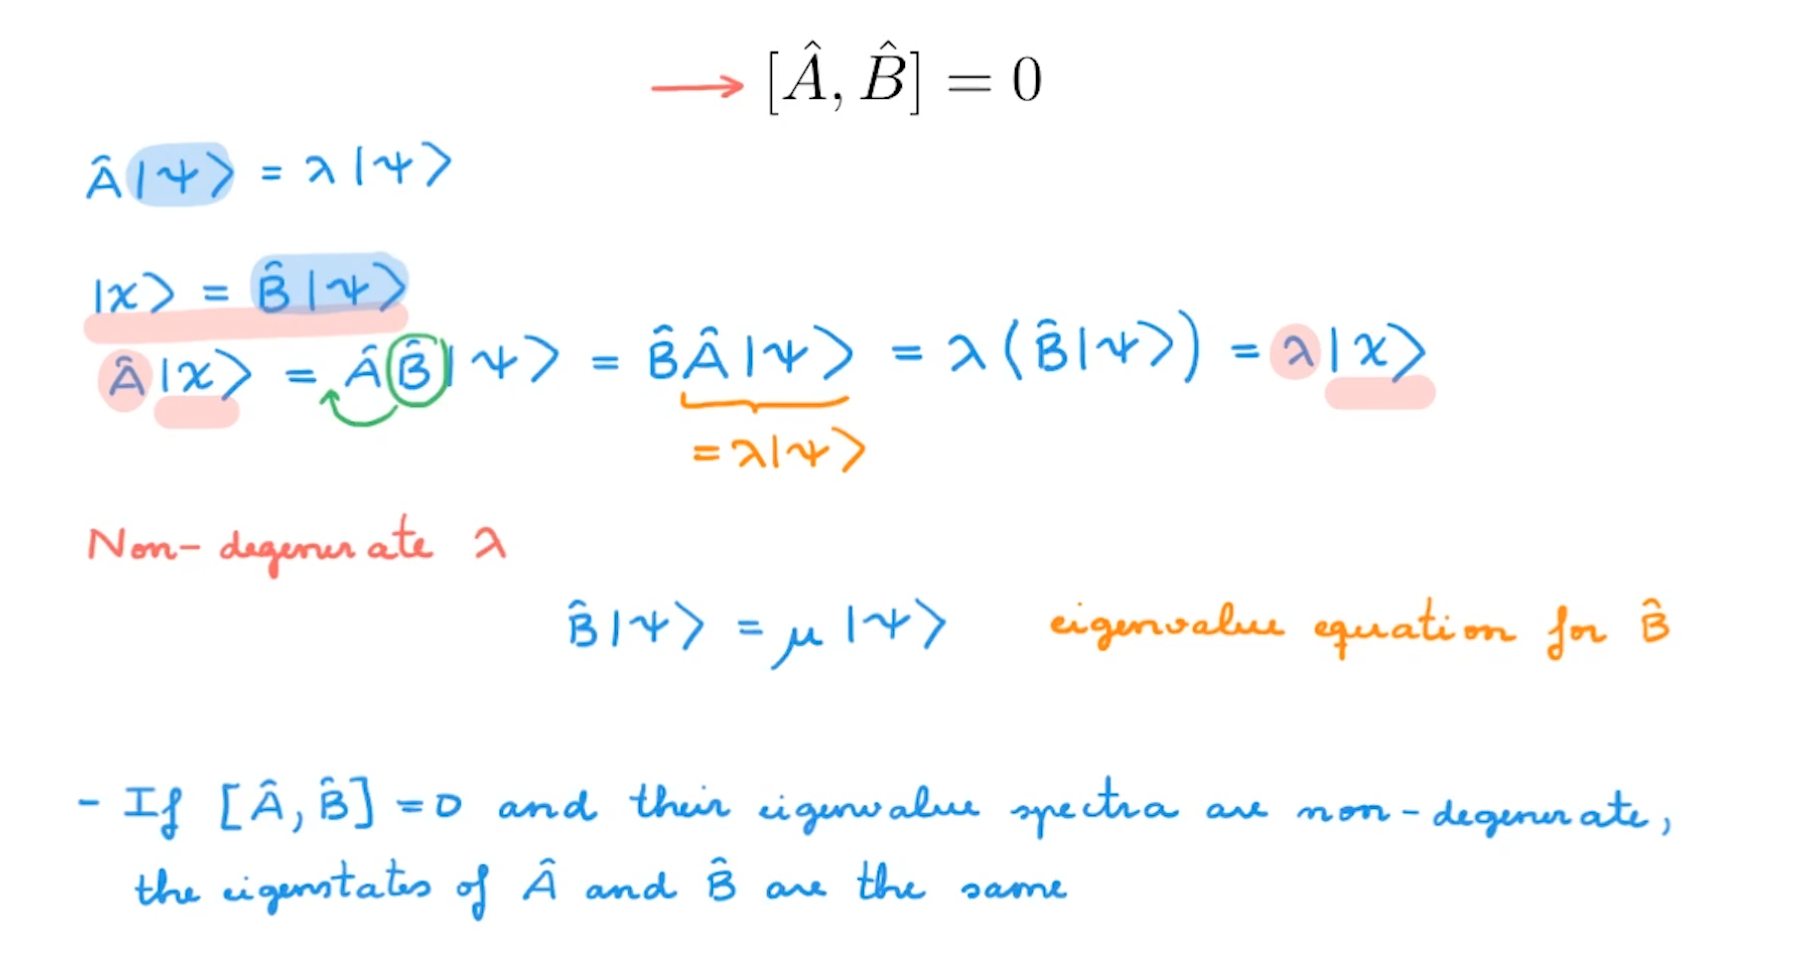 → [Â, B̂] = 0
Â|ψ⟩ = λ|ψ⟩
|χ⟩ = B̂|ψ⟩
Â|χ⟩ = ÂB̂|ψ⟩ = B̂Â|ψ⟩ = λ(B̂|ψ⟩) = λ|χ⟩
= λ|ψ⟩
Non-degenerate λ
B̂|ψ⟩ = μ|ψ⟩ eigenvalue equation for B̂
- If [Â, B̂] = 0 and their eigenvalue spectra are non-degenerate,
the eigenstates of Â and B̂ are the same